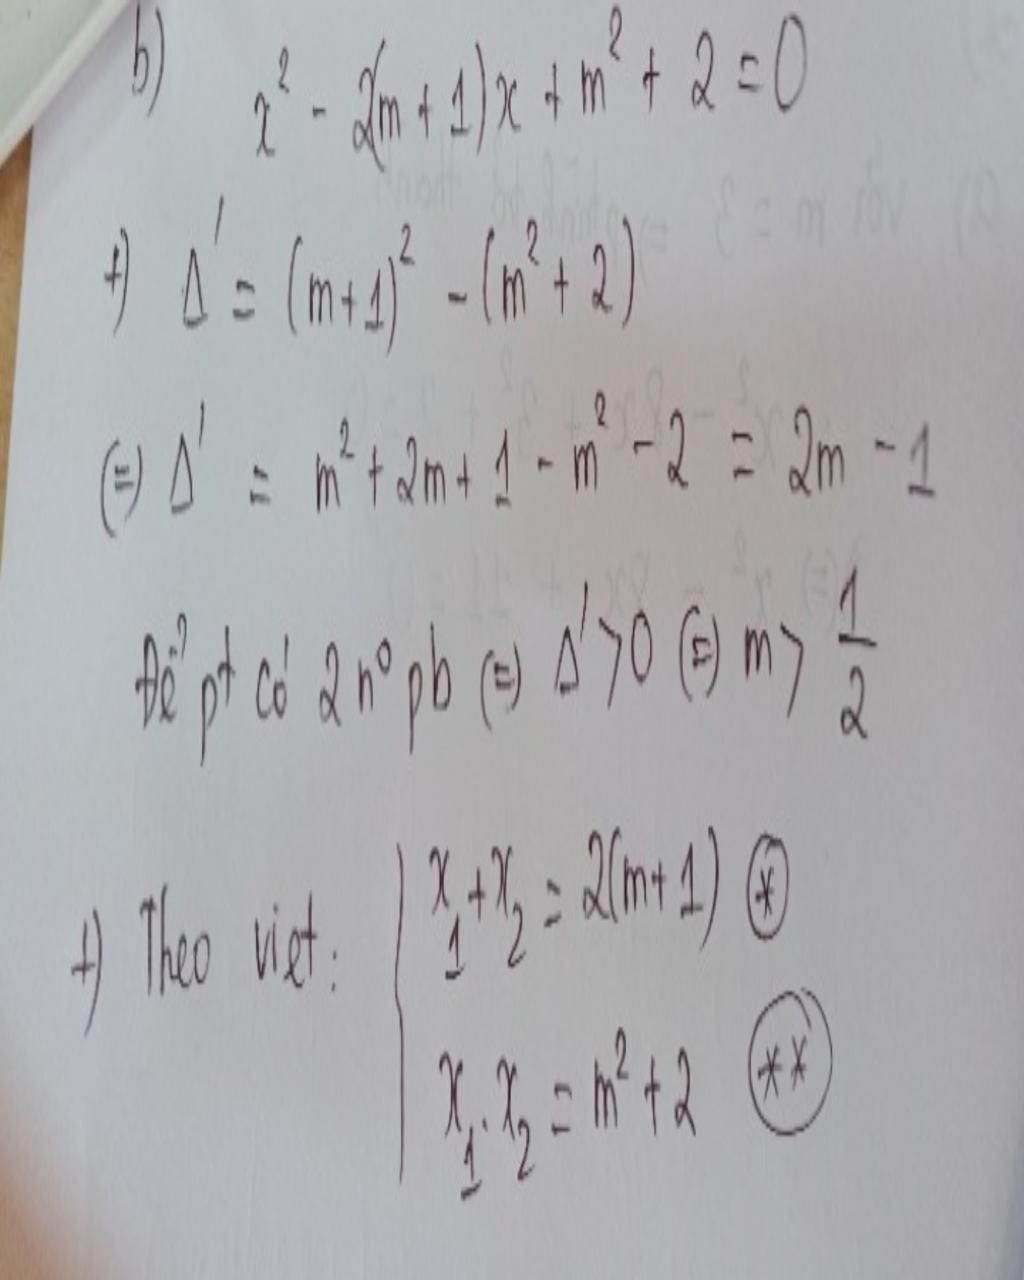 b) x² - 2(m + 1)x + m² + 2 = 0
+) Δ' = (m+1)² - (m² + 2)
(=) Δ' = m² + 2m + 1 - m² - 2 = 2m - 1
Để pt có 2 n° pb (=) Δ' > 0 (=) m > 1/2
+) Theo viet:
x₁ + x₂ = 2(m+1) (*)
x₁ . x₂ = m² + 2 (**)